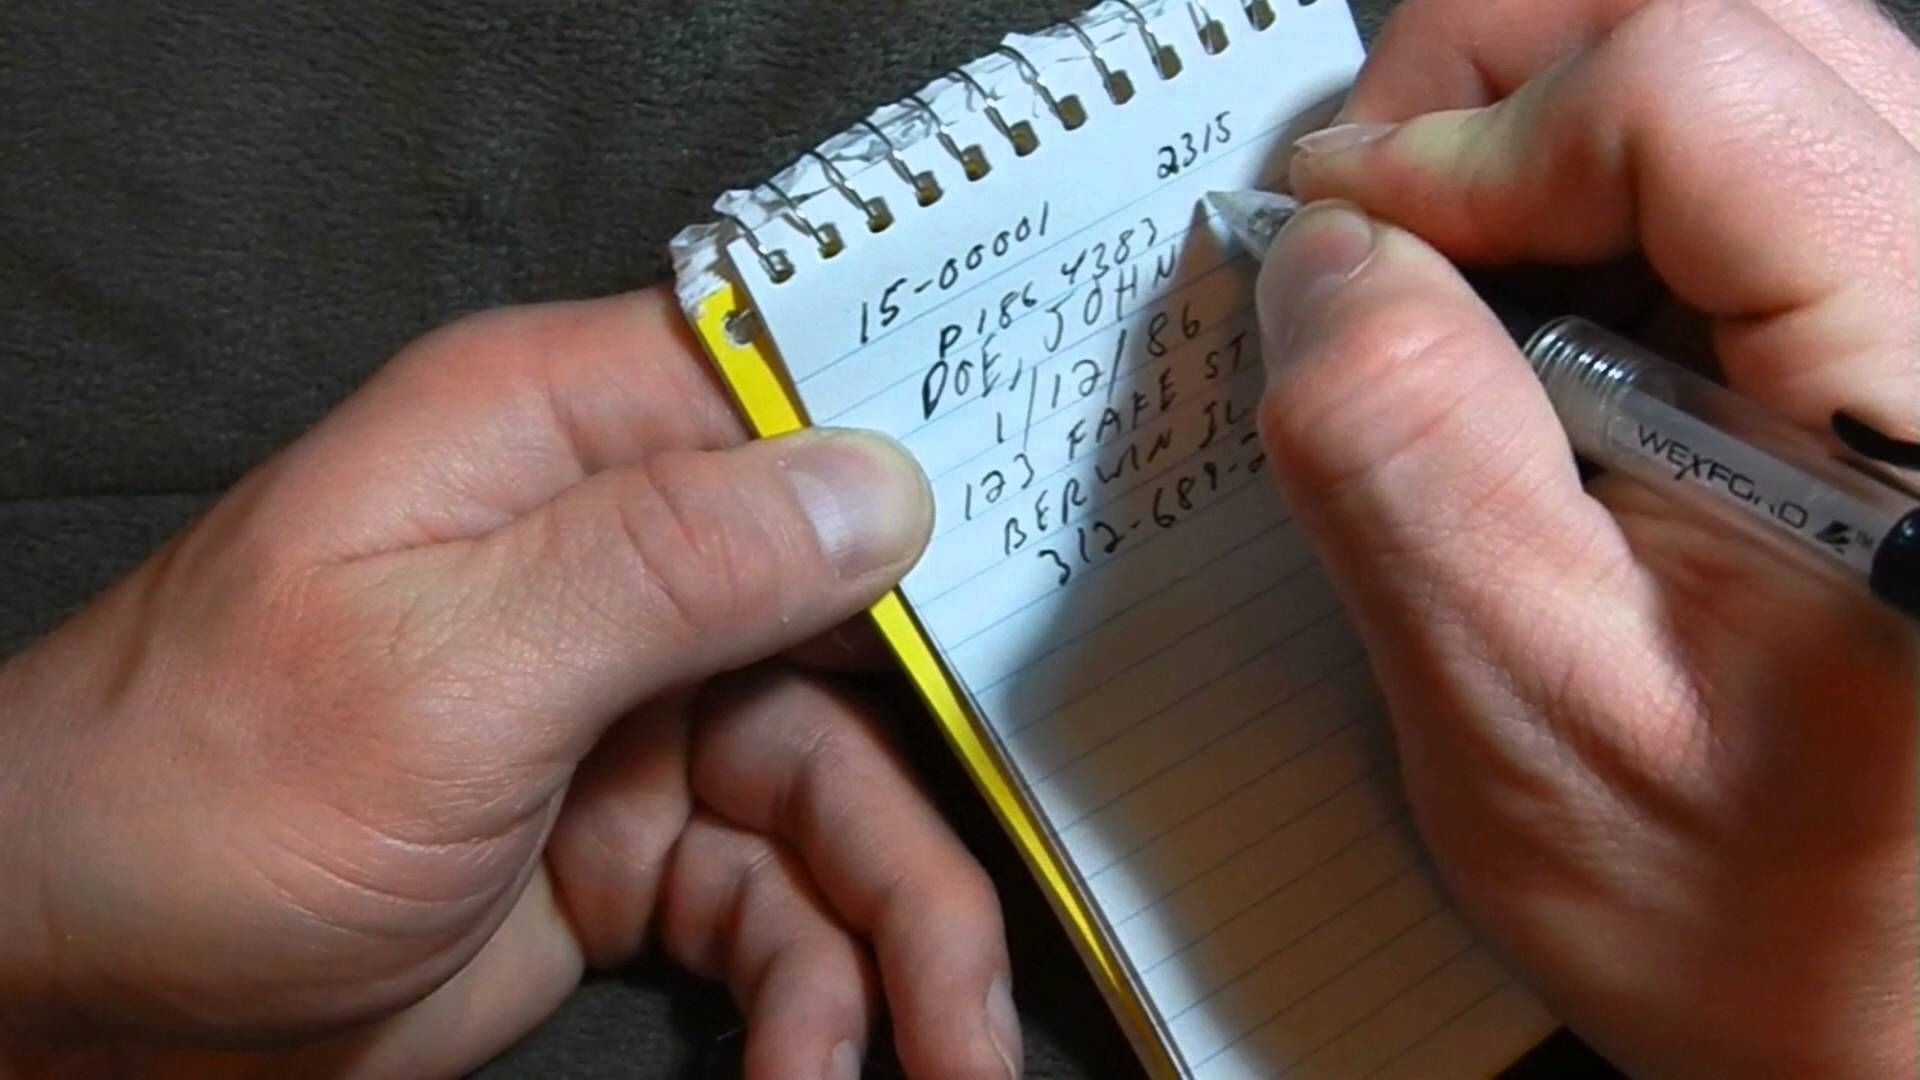 2315
15-00001
P186 4383
DOE, JOHN
1/12/86
123 FAKE ST
BERWIN IL
312-689-2
WEXFORD™